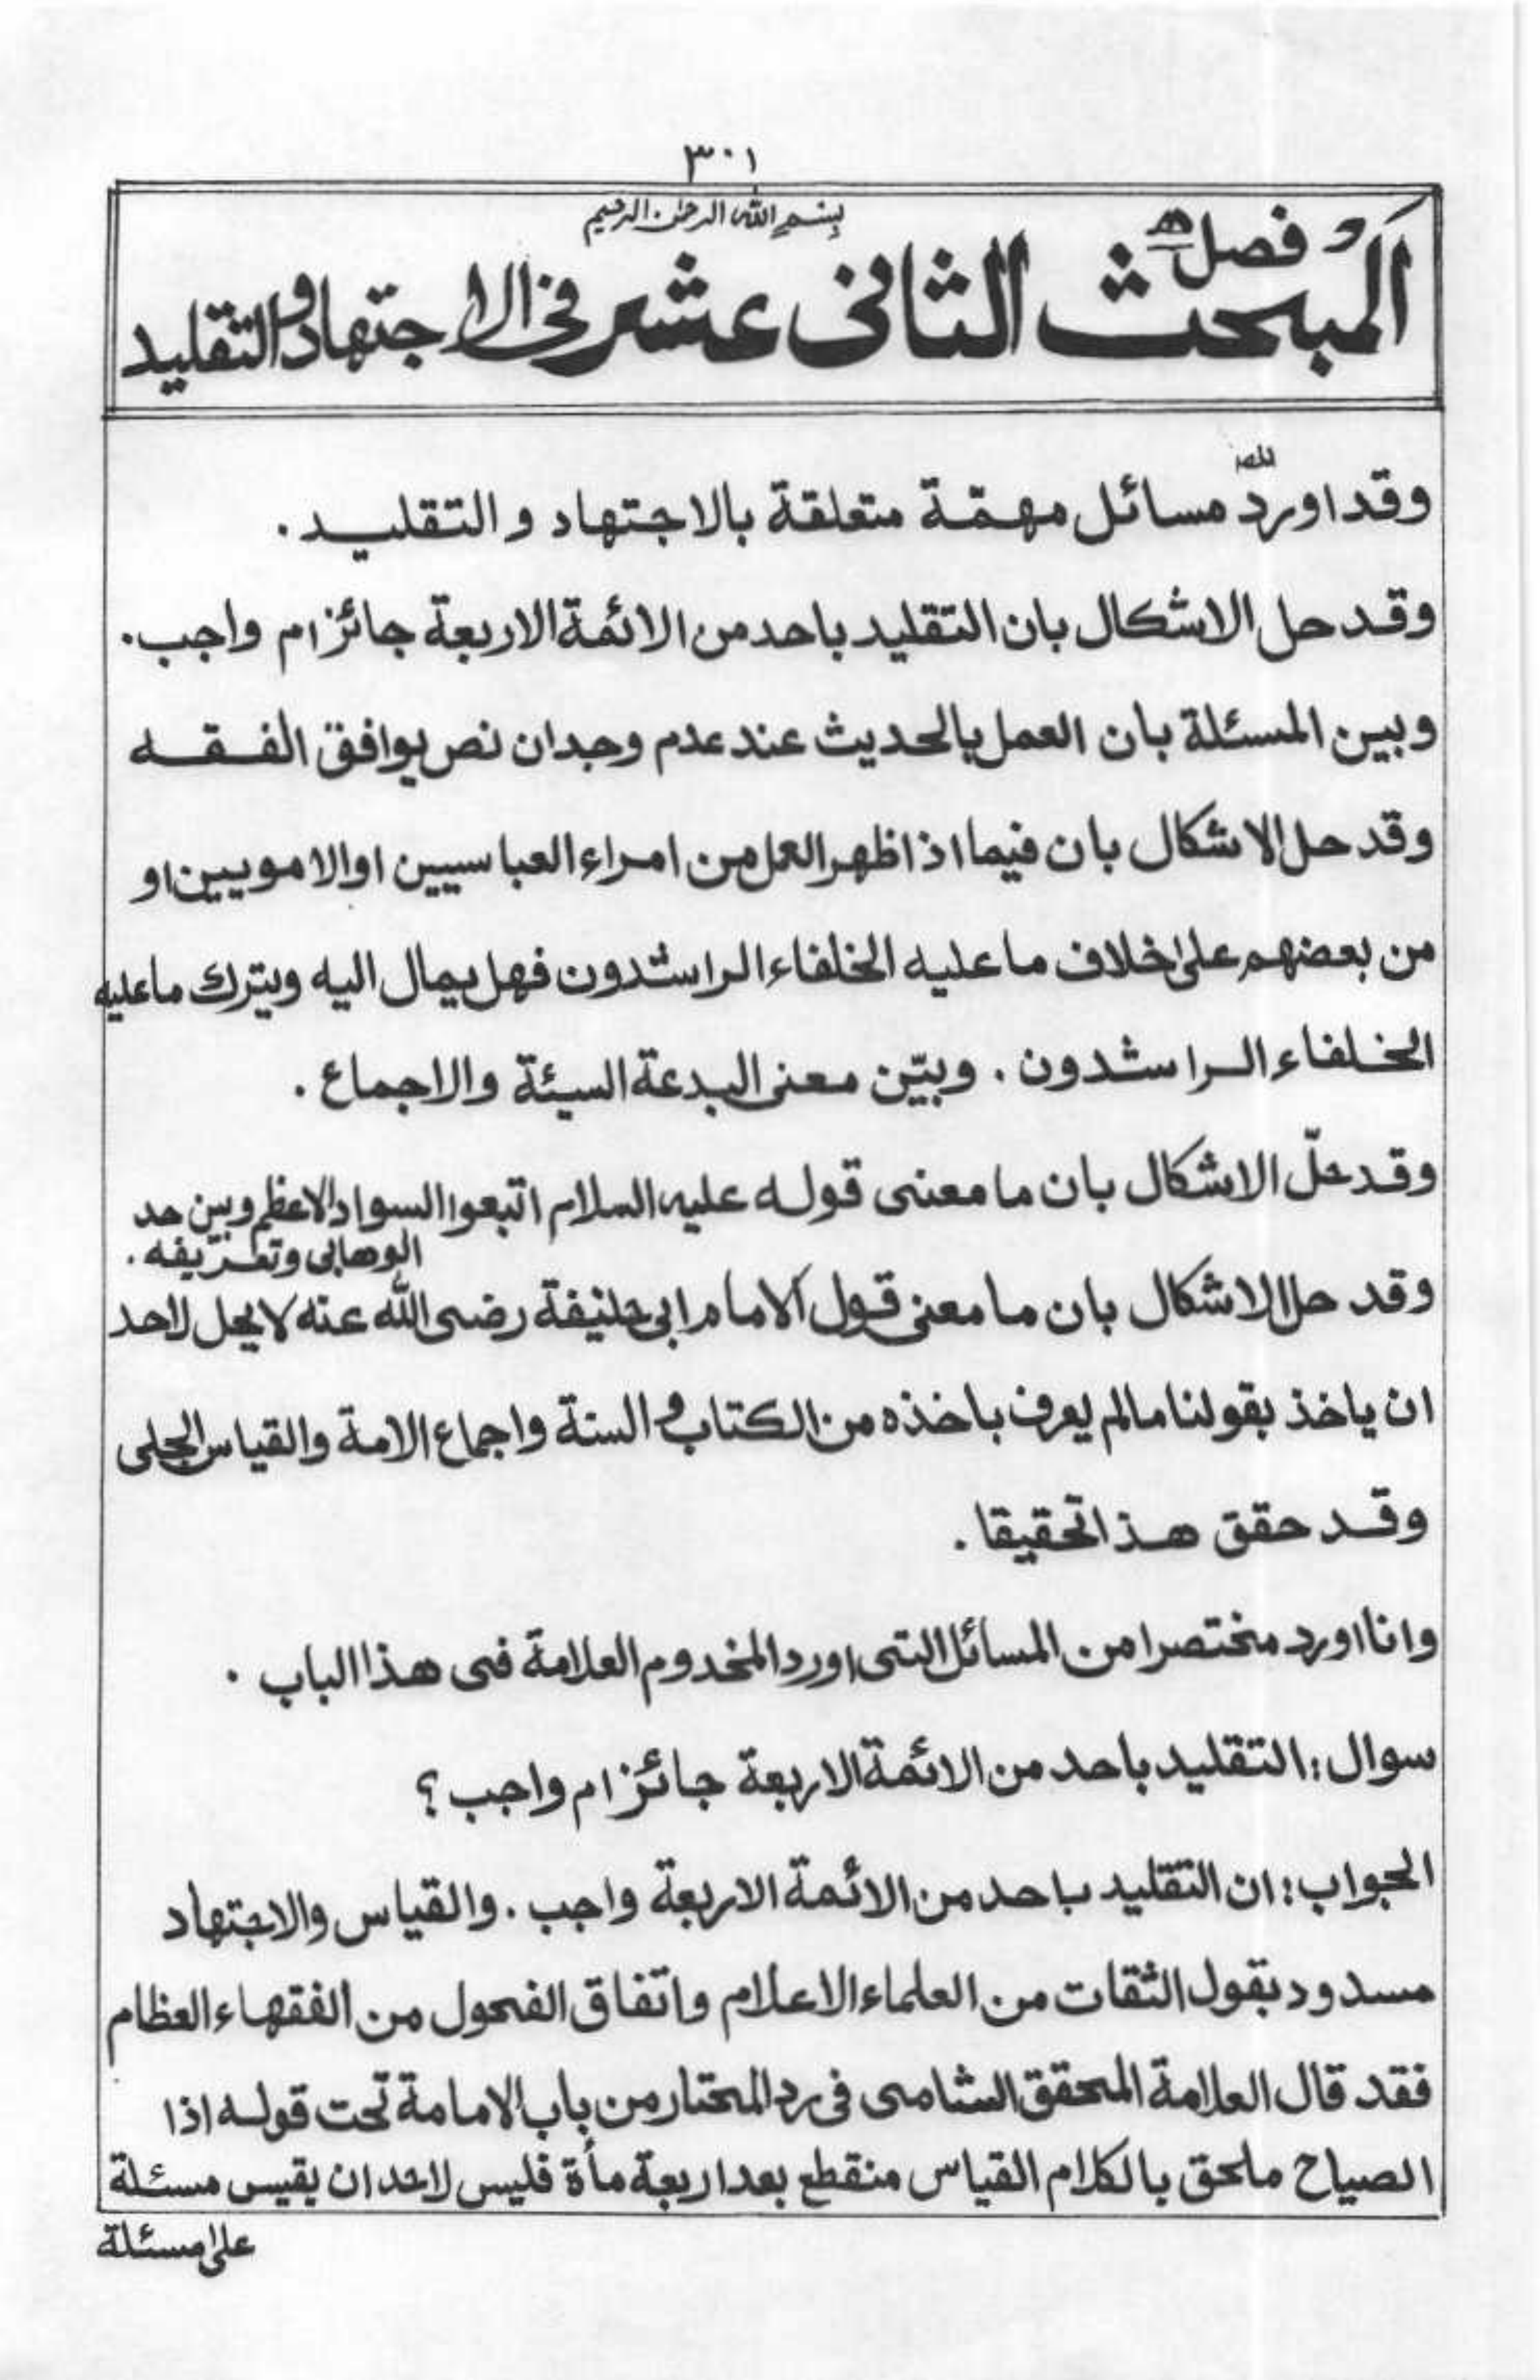 ٣٠١
بسم الله الرحمن الرحيم
فصل
المبحث الثانى عشر فى الاجتهاد والتقليد
وقد اورد مسائل مهمّة متعلقة بالاجتهاد و التقليد .
وقد حل الاشكال بان التقليد باحد من الائمة الاربعة جائز ام واجب .
وبين المسئلة بان العمل بالحديث عند عدم وجدان نص يوافق الفقه
وقد حل الاشكال بان فيما اذا ظهر العمل من امراء العباسيين او الامويين او
من بعضهم على خلاف ما عليه الخلفاء الراشدون فهل يمال اليه ويترك ما عليه
الخلفاء الراشدون . وبيّن معنى البدعة السيئة والاجماع .
وقد حلّ الاشكال بان ما معنى قوله عليه السلام اتبعوا السواد الاعظم وبين حد
الوهابى وتعريفه .
وقد حل الاشكال بان ما معنى قول الامام ابى حنيفة رضى الله عنه لا يحل لاحد
ان ياخذ بقولنا مالم يعرف باخذه من الكتاب و السنة واجماع الامة والقياس الجلى
وقد حقق هذا تحقيقا .
وانا اورد مختصرا من المسائل التى اورد المخدوم العلامة فى هذا الباب .
سوال : التقليد باحد من الائمة الاربعة جائز ام واجب ؟
الجواب : ان التقليد باحد من الائمة الاربعة واجب . والقياس والاجتهاد
مسدود بقول الثقات من العلماء الاعلام واتفاق الفحول من الفقهاء العظام
فقد قال العلامة المحقق الشامى فى رد المحتار من باب الامامة تحت قوله اذا
الصياح ملحق بالكلام القياس منقطع بعد اربعة مأة فليس لاحد ان يقيس مسئلة
على مسئلة